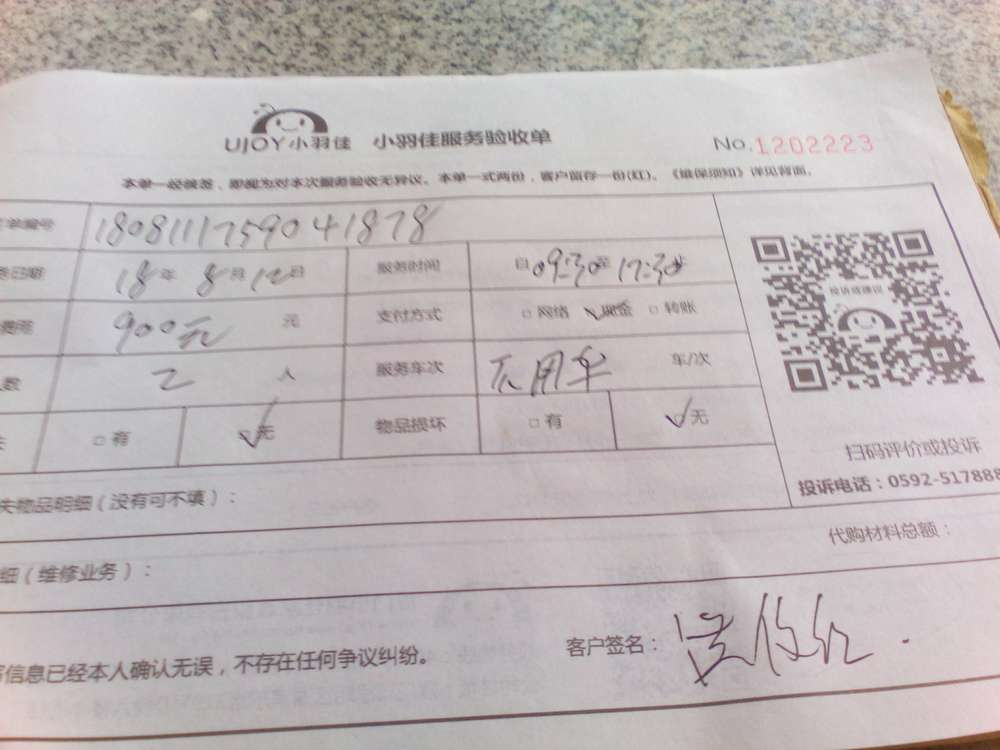 UJOY小羽佳 小羽佳服务验收单 No.1202223
本单一经签署，即视为对本次服务验收无异议。本单一式两份，客户留存一份(红)。《维保须知》详见背面。
单编号 1808111759041878
日期 18年 8月12日 服务时间 自09:30至17:30
900元 元 支付方式 □网络 ☑现金 □转账
数 2 人 服务车次 不用车 车/次
□有 ☑无 物品损坏 □有 ☑无
投诉或建议
扫码评价或投诉
投诉电话：0592-517888
失物品明细（没有可不填）：
代购材料总额：
细（维修业务）：
信息已经本人确认无误，不存在任何争议纠纷。 客户签名：